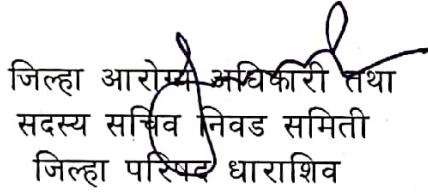 जिल्हा आरोग्य अधिकारी तथा
सदस्य सचिव निवड समिती
जिल्हा परिषद धाराशिव